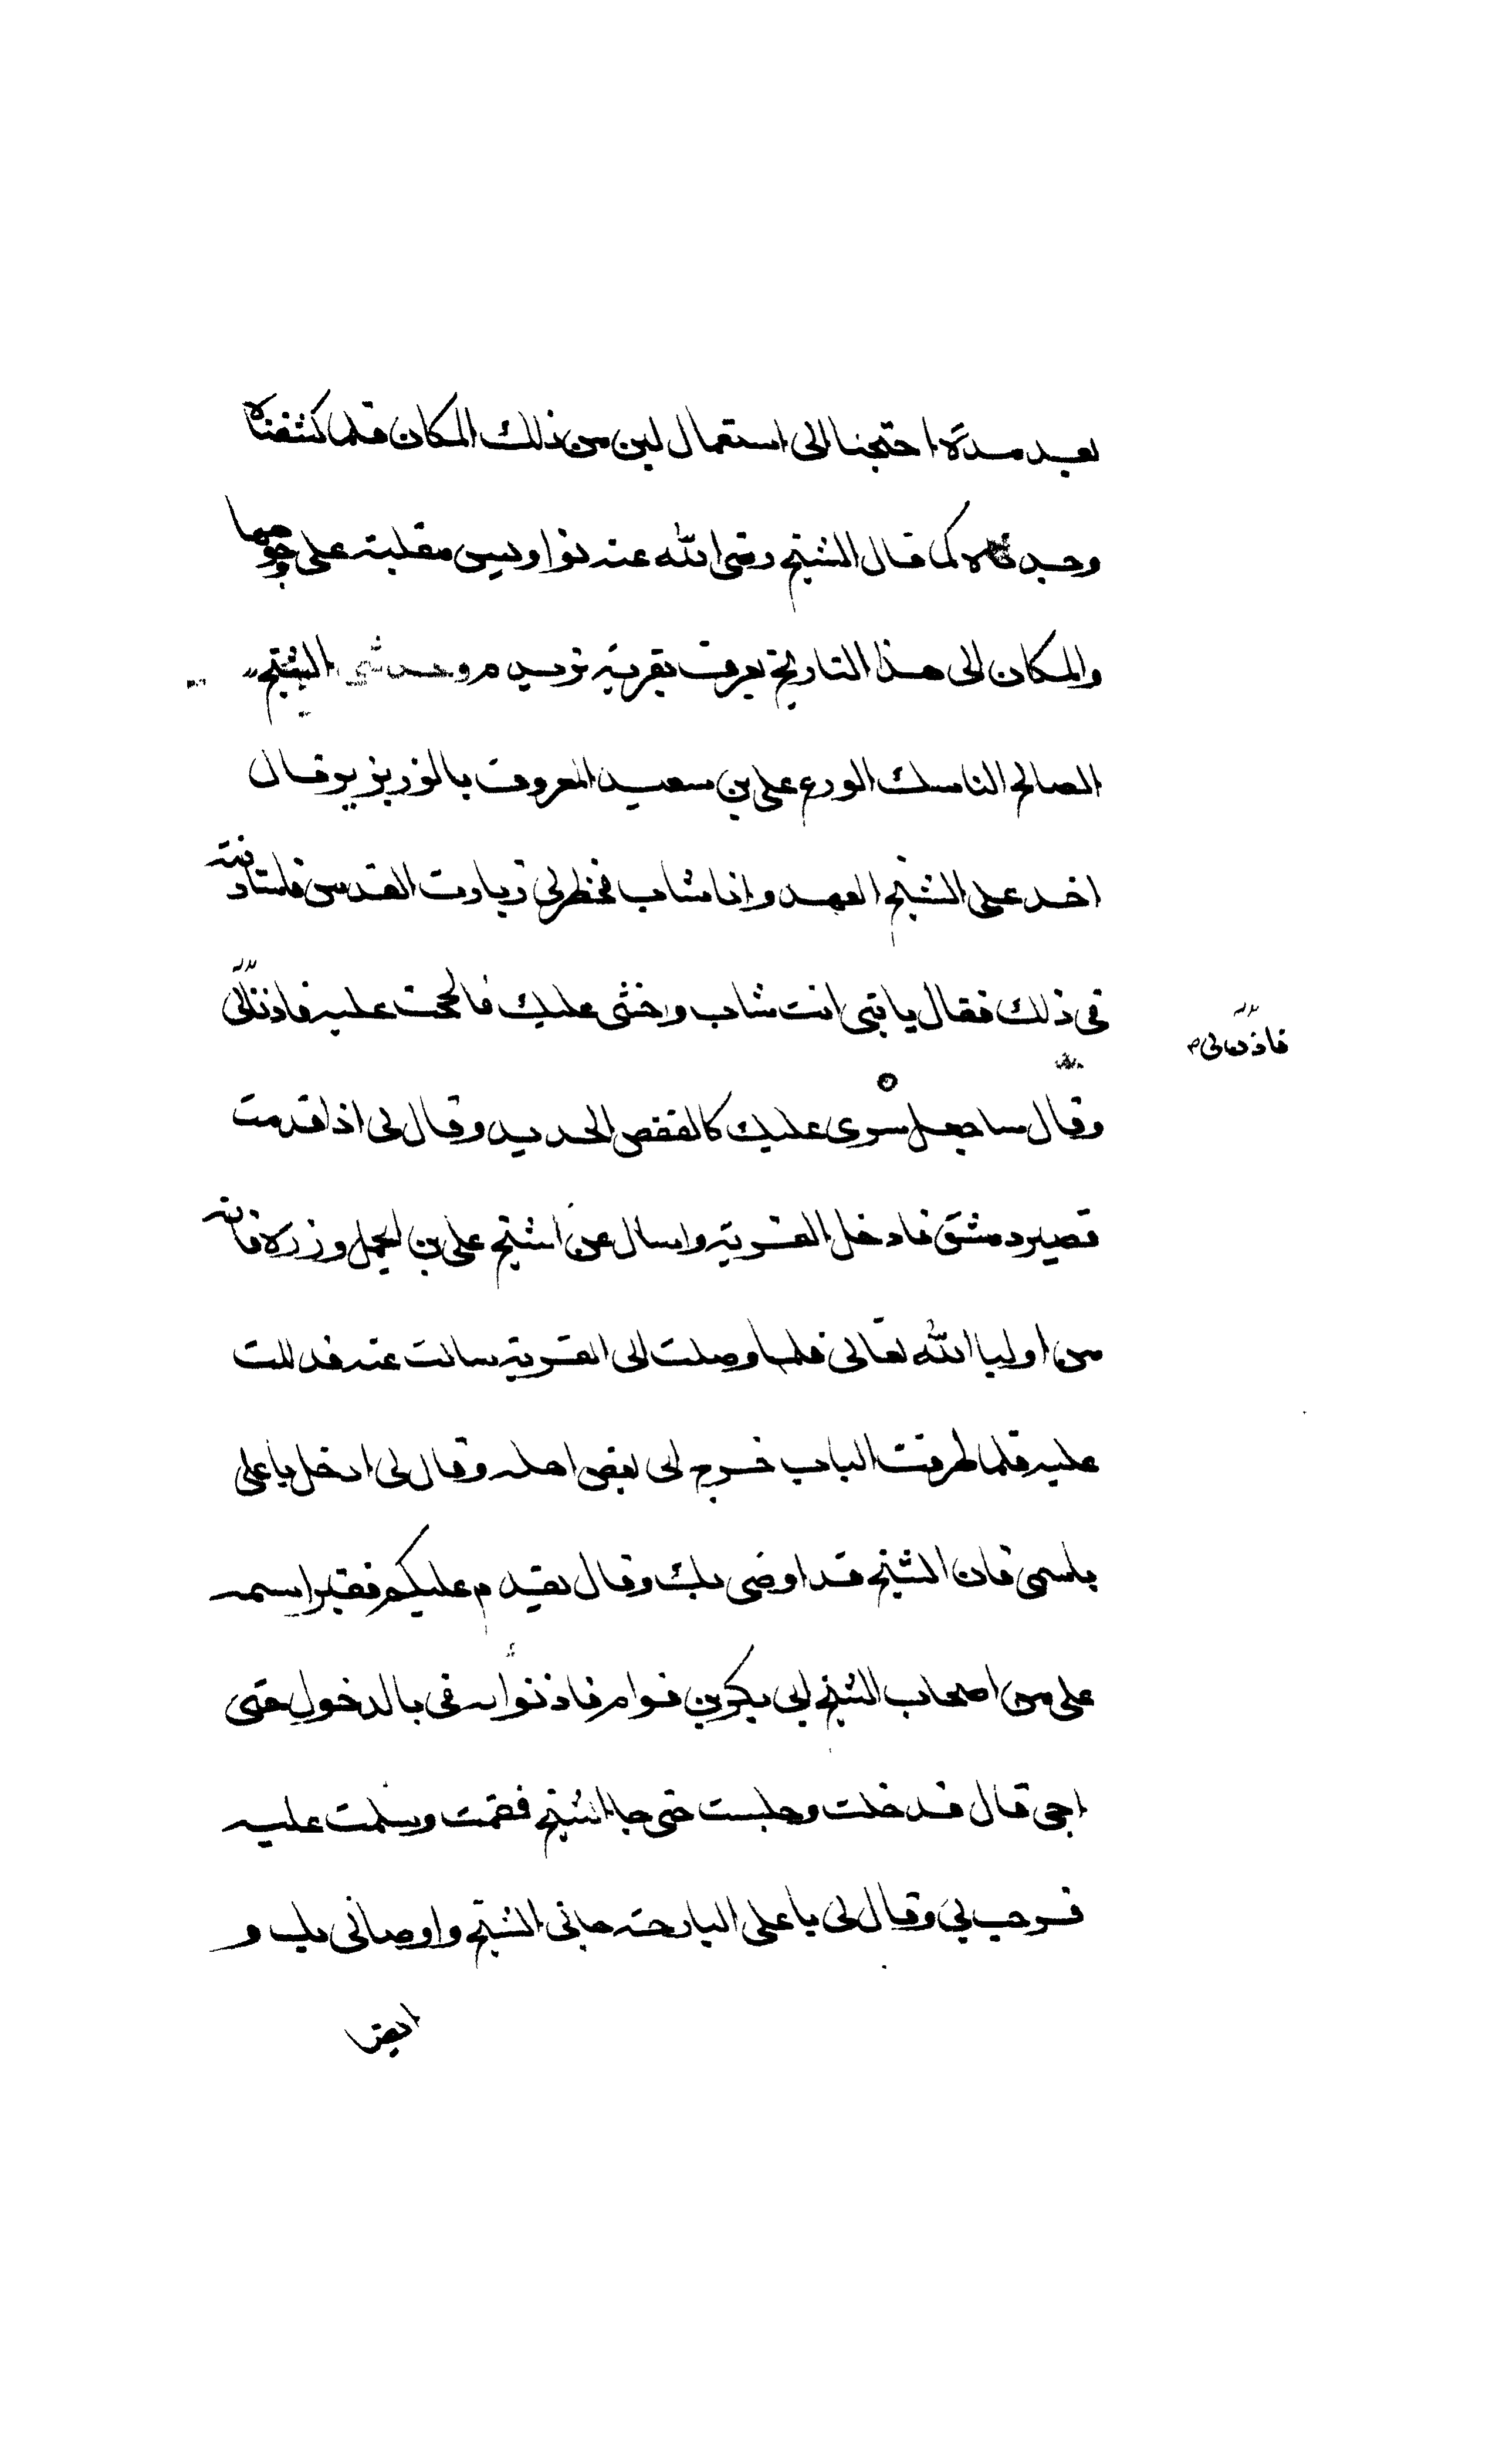 بعد مدة احتجنا الى استعمال لبن من ذلك المكان فلما كشفناه
وجدناه كما قال الشيخ رضى الله عنه نواويس مقلبة على وجوهها
والمكان الى هذا التاريخ يعرف بقرية تدبيد م وحدثنى الشيخ
الصالح الناسك الورع على بن سعيد المعروف بالوزيزير قال
اخد على الشيخ العهد وانا شاب فخطر لى زيارت القدس فاستاذنته
فى ذلك فقال يا بنى انت شاب واخشى عليك فالححت عليه فاذن لى
فاذن لى
وقال ساجعل سرى عليك كالقفص الحديد وقال لى اذا قدمت
قصير دمشق فادخل القرية واسال عن الشيخ على بن الجمل وزره فانه
من اوليا الله تعالى فلما وصلت الى القرية سالت عنه فدللت
عليه فلما طرقت الباب خرج لى بعض اهله وقال لى ادخل يا على
باسمى فان الشيخ قد اوصى بك وقال يقدم عليكم فقير اسمه
على من اصحاب الشيخ ابى بكر بن قوام فاذنوا له فى بالدخول حتى
اجى قال فدخلت وجلست حتى جا الشيخ فقمت وسلمت عليه
فرحب بى وقال لى يا على البارحة جانى الشيخ واوصانى بك و
ايضا